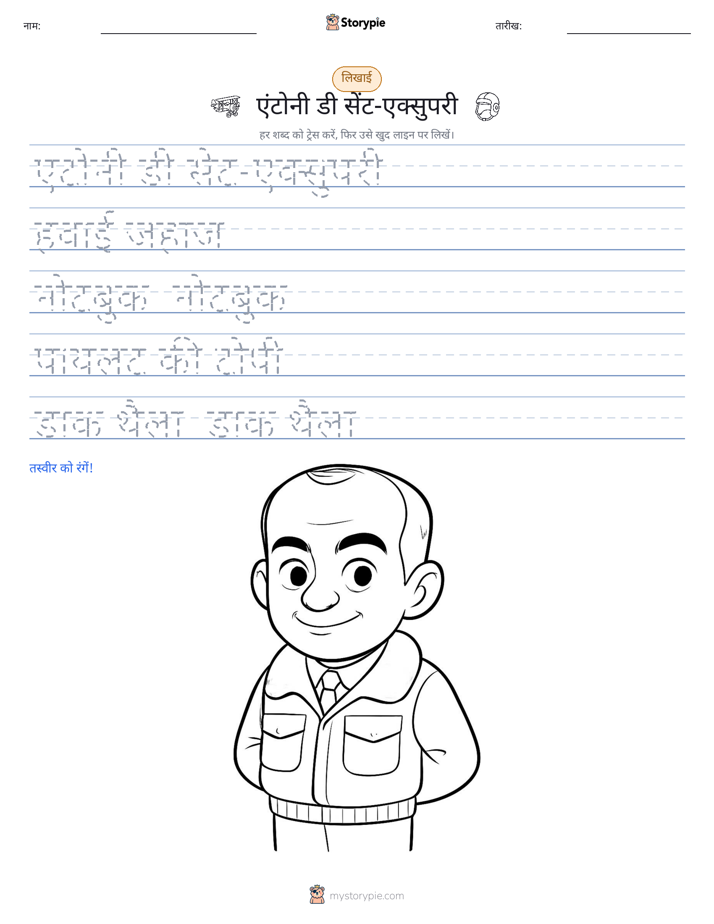 नाम:
Storypie
तारीख:
लिखाई
एंटोनी डी सेंट-एक्सुपरी
हर शब्द को ट्रेस करें, फिर उसे खुद लाइन पर लिखें।
एंटोनी डी सेंट-एक्सुपरी
हवाई जहाज
नोटबुक नोटबुक
पायलट की टोपी
डाक थैला डाक थैला
तस्वीर को रंगें!
mystorypie.com